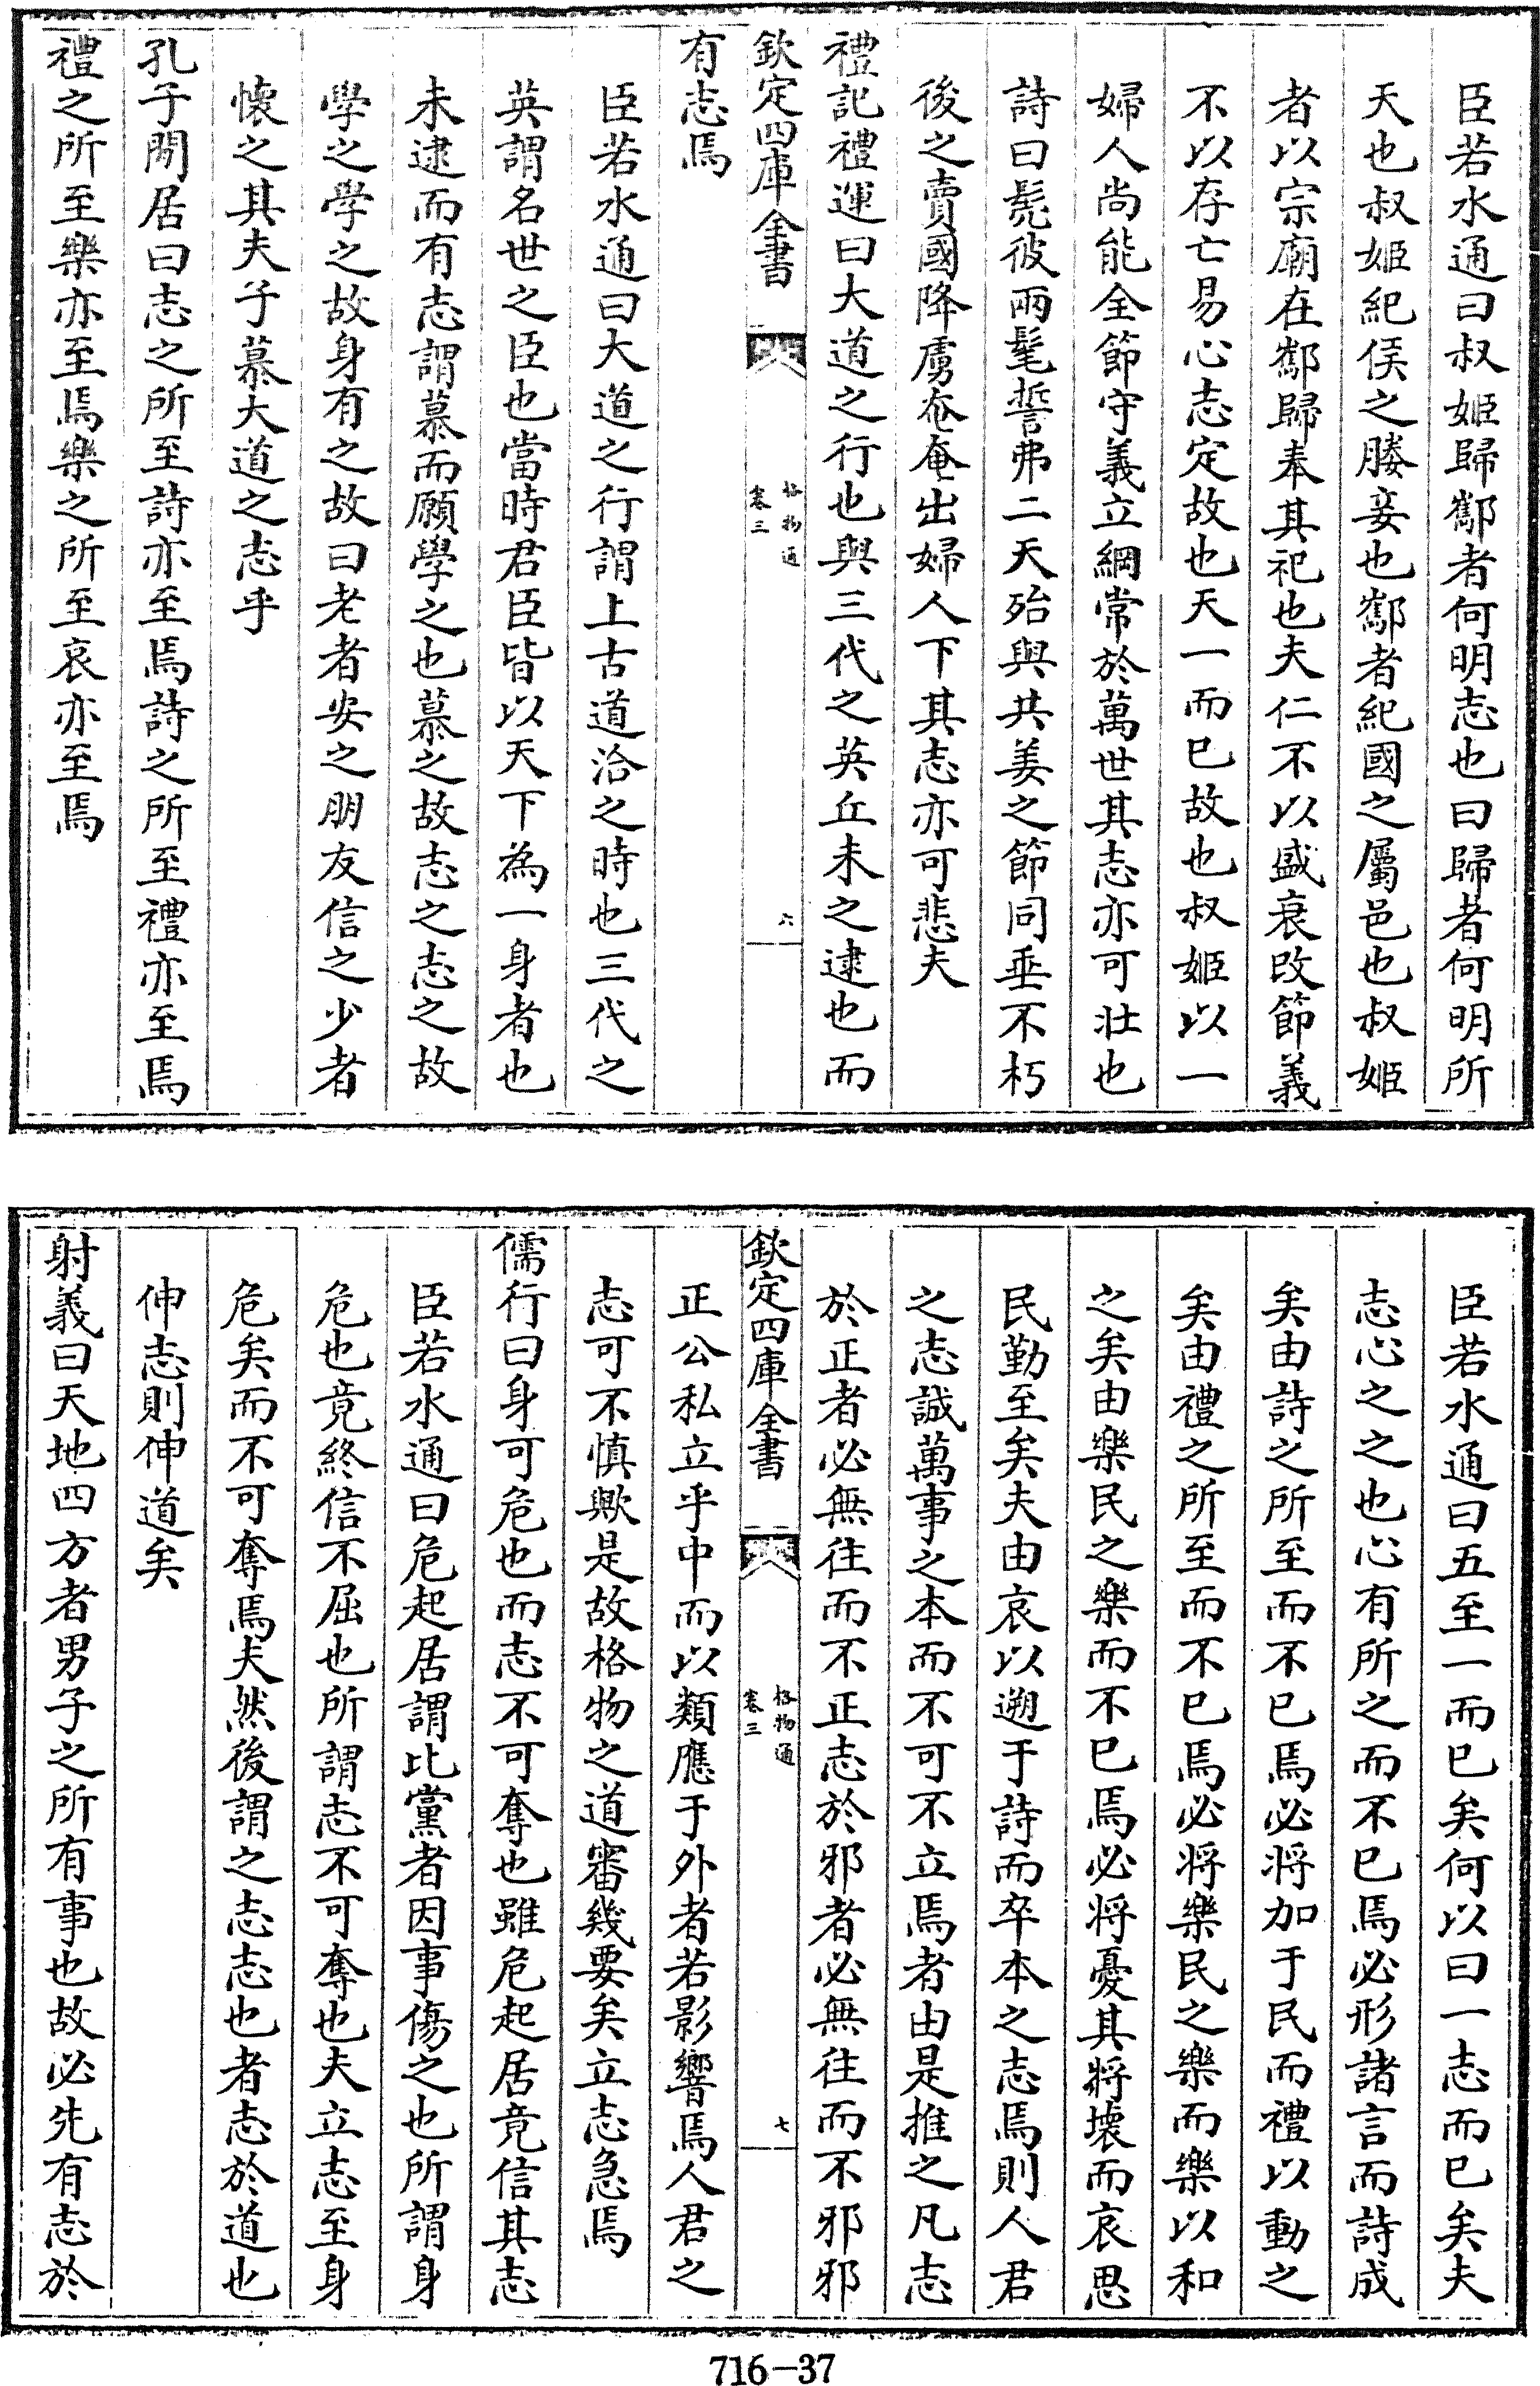 臣若水通曰叔姬歸酅者何明志也曰歸者何明所
天也叔姬紀侯之媵妾也酅者紀國之屬邑也叔姬
者以宗廟在酅歸奉其祀也夫仁不以盛衰改節義
不以存亡易心志定故也天一而已故也叔姬以一
婦人尚能全節守義立綱常於萬世其志亦可壯也
詩曰髧彼兩髦誓弗二天殆與共姜之節同垂不朽
後之賣國降虜奄奄出婦人下其志亦可悲夫
禮記禮運曰大道之行也與三代之英丘未之逮也而
欽定四庫全書
格物通
卷三
六
有志焉
臣若水通曰大道之行謂上古道洽之時也三代之
英謂名世之臣也當時君臣皆以天下為一身者也
未逮而有志謂慕而願學之也慕之故志之志之故
學之學之故身有之故曰老者安之朋友信之少者
懷之其夫子慕大道之志乎
孔子閒居曰志之所至詩亦至焉詩之所至禮亦至焉
禮之所至樂亦至焉樂之所至哀亦至焉
臣若水通曰五至一而已矣何以曰一志而已矣夫
志心之之也心有所之而不已焉必形諸言而詩成
矣由詩之所至而不已焉必將加于民而禮以動之
矣由禮之所至而不已焉必將樂民之樂而樂以和
之矣由樂民之樂而不已焉必將憂其將壞而哀思
民勤至矣夫由哀以遡于詩而卒本之志焉則人君
之志誠萬事之本而不可不立焉者由是推之凡志
於正者必無往而不正志於邪者必無往而不邪邪
欽定四庫全書
格物通
卷三
七
正公私立乎中而以類應于外者若影響焉人君之
志可不慎歟是故格物之道審幾要矣立志急焉
儒行曰身可危也而志不可奪也雖危起居竟信其志
臣若水通曰危起居謂比黨者因事傷之也所謂身
危也竟終信不屈也所謂志不可奪也夫立志至身
危矣而不可奪焉夫然後謂之志志也者志於道也
伸志則伸道矣
射義曰天地四方者男子之所有事也故必先有志於
716-37